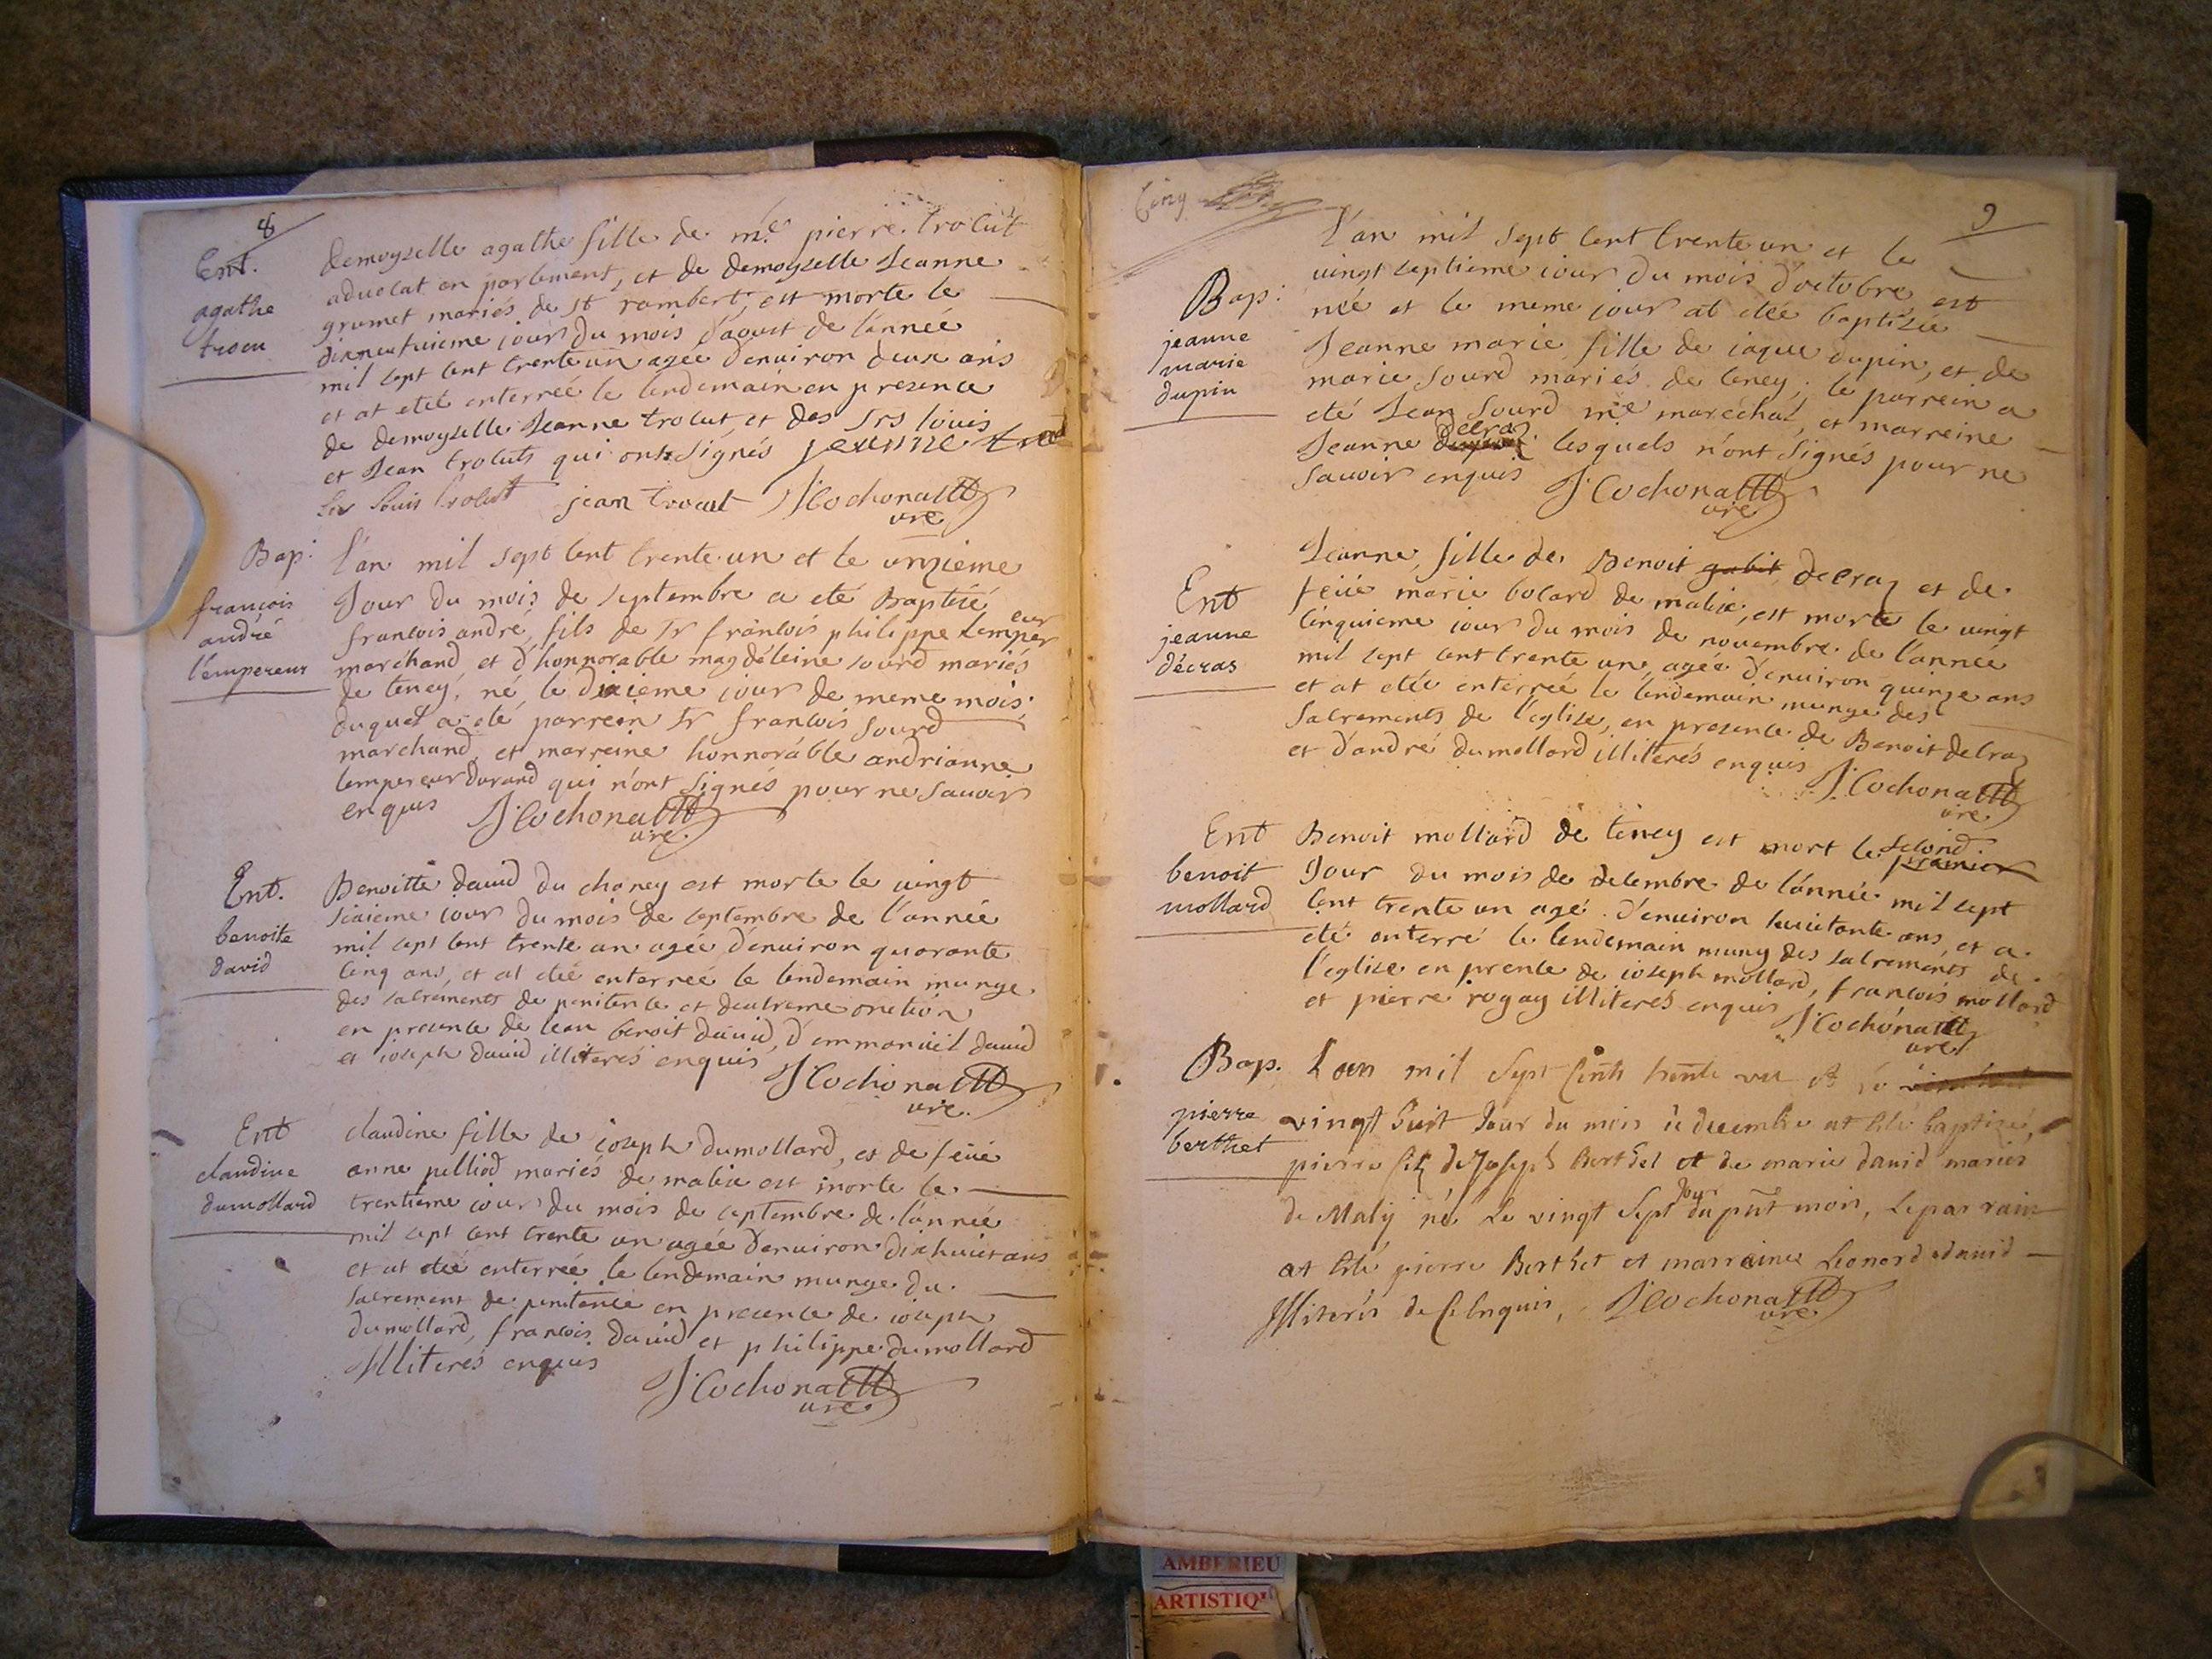 8
Ent.
agathe
trocu
demoyselle agathe fille de me pierre trocut
aduocat en parlement, et de demoyselle Jeanne
grumet mariés de st rambert, est morte le
dixneufuieme jour du mois d'aoust de l'année
mil sept cent trente un agée d'enuiron deux ans
et at eteé enterreé le lendemain en presence
de demoyselle Jeanne trocut, et des Srs louis
et Jean trocuts qui onts signés jeanne
Louis trocut jean trocut J Cochonatt
Bap:
françois
andré
l'empereur
l'an mil sept cent trente un et le onzieme
Jour du mois de septembre a eté Baptisé
francois andré, fils de sr francois philippe lempereur
marchand, et d'honnorable magdeleine sourd mariés
de teney, né le dixieme jour de meme mois,
duquel a eté parrein sr francois sourd
marchand, et marreine honnorable andrianne
lempereur durand qui n'ont signés pour ne sauoir
enquis J Cochonatt
curé
Ent.
benoite
david
Benoitte dauid du chaney est morte le uingt
sixieme jour du mois de septembre de l'année
mil sept cent trente un agée d'enuiron quarante
cinq ans, et at eteé enterreé le lendemain munye
des sacrements de penitence et d'extreme onction
en presence de Jean benoit dauid, d'emmanuel dauid
et joseph dauid illiteres enquis J Cochonatt
curé
Ent
claudine
dumollard
claudine fille de joseph dumollard, et de feüe
anne pelliod mariés de malix est morte le
trentieme jour du mois de septembre de l'année
mil sept cent trente un agée d'enuiron dixhuict ans
et at eteé enterreé le lendemain munye du
sacrement de penitence en presence de joseph
dumollard, francois dauid et philippe dumollard
illiteres enquis
J Cochonatt
curé
9
Bap:
jeanne
marie
dupin
l'an mil sept cent trente un et le
uingt septieme jour du mois d'octobre est
neé et le meme jour at eteé baptisée
Jeanne marie fille de jaque dupin, et de
marie sourd mariés de teney, le parrein a
eté Jean sourd me marechal, et marreine
Jeanne decraz lesquels n'ont signés pour ne
sauoir enquis J Cochonatt
curé
Ent
jeanne
décras
Jeanne, fille de Benoit gubit decraz et de
feüe marie bolard de malix, est morte le uingt
cinquieme jour du mois de nouembre de l'année
mil sept cent trente un, agée d'enuiron quinze ans
et at eteé enterreé le lendemain munye des
sacrements de l'eglise, en presence de Benoit decraz
et d'andré dumollard illiterés enquis J Cochonatt
curé
Ent
benoit
mollard
Benoit mollard de teney est mort le second premier
Jour du mois de decembre de l'année mil sept
cent trente un agé d'enuiron huictante ans, et a
eté enterré le lendemain muny des sacrements de
l'eglise en prence de joseph mollard, francois mollard
et pierre rogay illiteres enquis J Cochonatt
curé
Bap.
pierre
berthet
L'an mil sept cents trente un et le
vingt huit Jour du mois de decembre at été baptisé,
pierre fils de Joseph Berthet et de marie david mariés
de Maly né le vingt sept Jour du pnt mois, le parrain
at été pierre Berthet et marraine Leonard david
Illiterés de ce Enquis, J Cochonatt
curé
AMBERIEU
ARTISTIQU